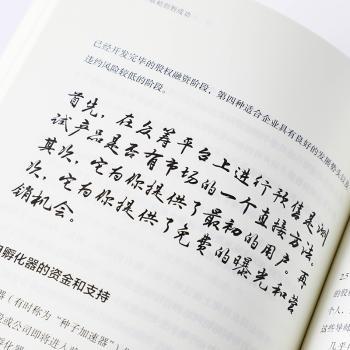 已经开发完毕的股权融资阶段，第四种适合企业具有良好的发展势头
违约风险较低的阶段。
首先，在众筹平台上进行预售是测
试产品是否有市场的一个直接方法。
其次，它为你提供了最初的用户。再
次，它为你提供了免费的曝光和营
销机会。
孵化器的资金和支持
器（有时称为“种子加速器”）
或公司即将进入
2.5
的股
个人、
这些导
几乎